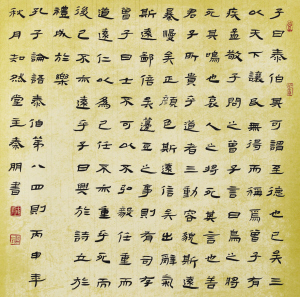 子曰泰伯其可謂至德也已矣三
以天下讓民無得而稱焉曾子有
疾孟敬子問之曾子言曰鳥之將
死其鳴也哀人之將死其言也善
君子所貴乎道者三動容貌斯遠
暴慢矣正顏色斯近信矣出辭氣
斯遠鄙倍矣籩豆之事則有司存
曾子曰士不可以不弘毅任重而
道遠仁以為己任不亦重乎死而
後已不亦遠乎子曰興於詩立於
禮成於樂
孔子論語泰伯第八四則丙申年
秋月然堂主秦朋書